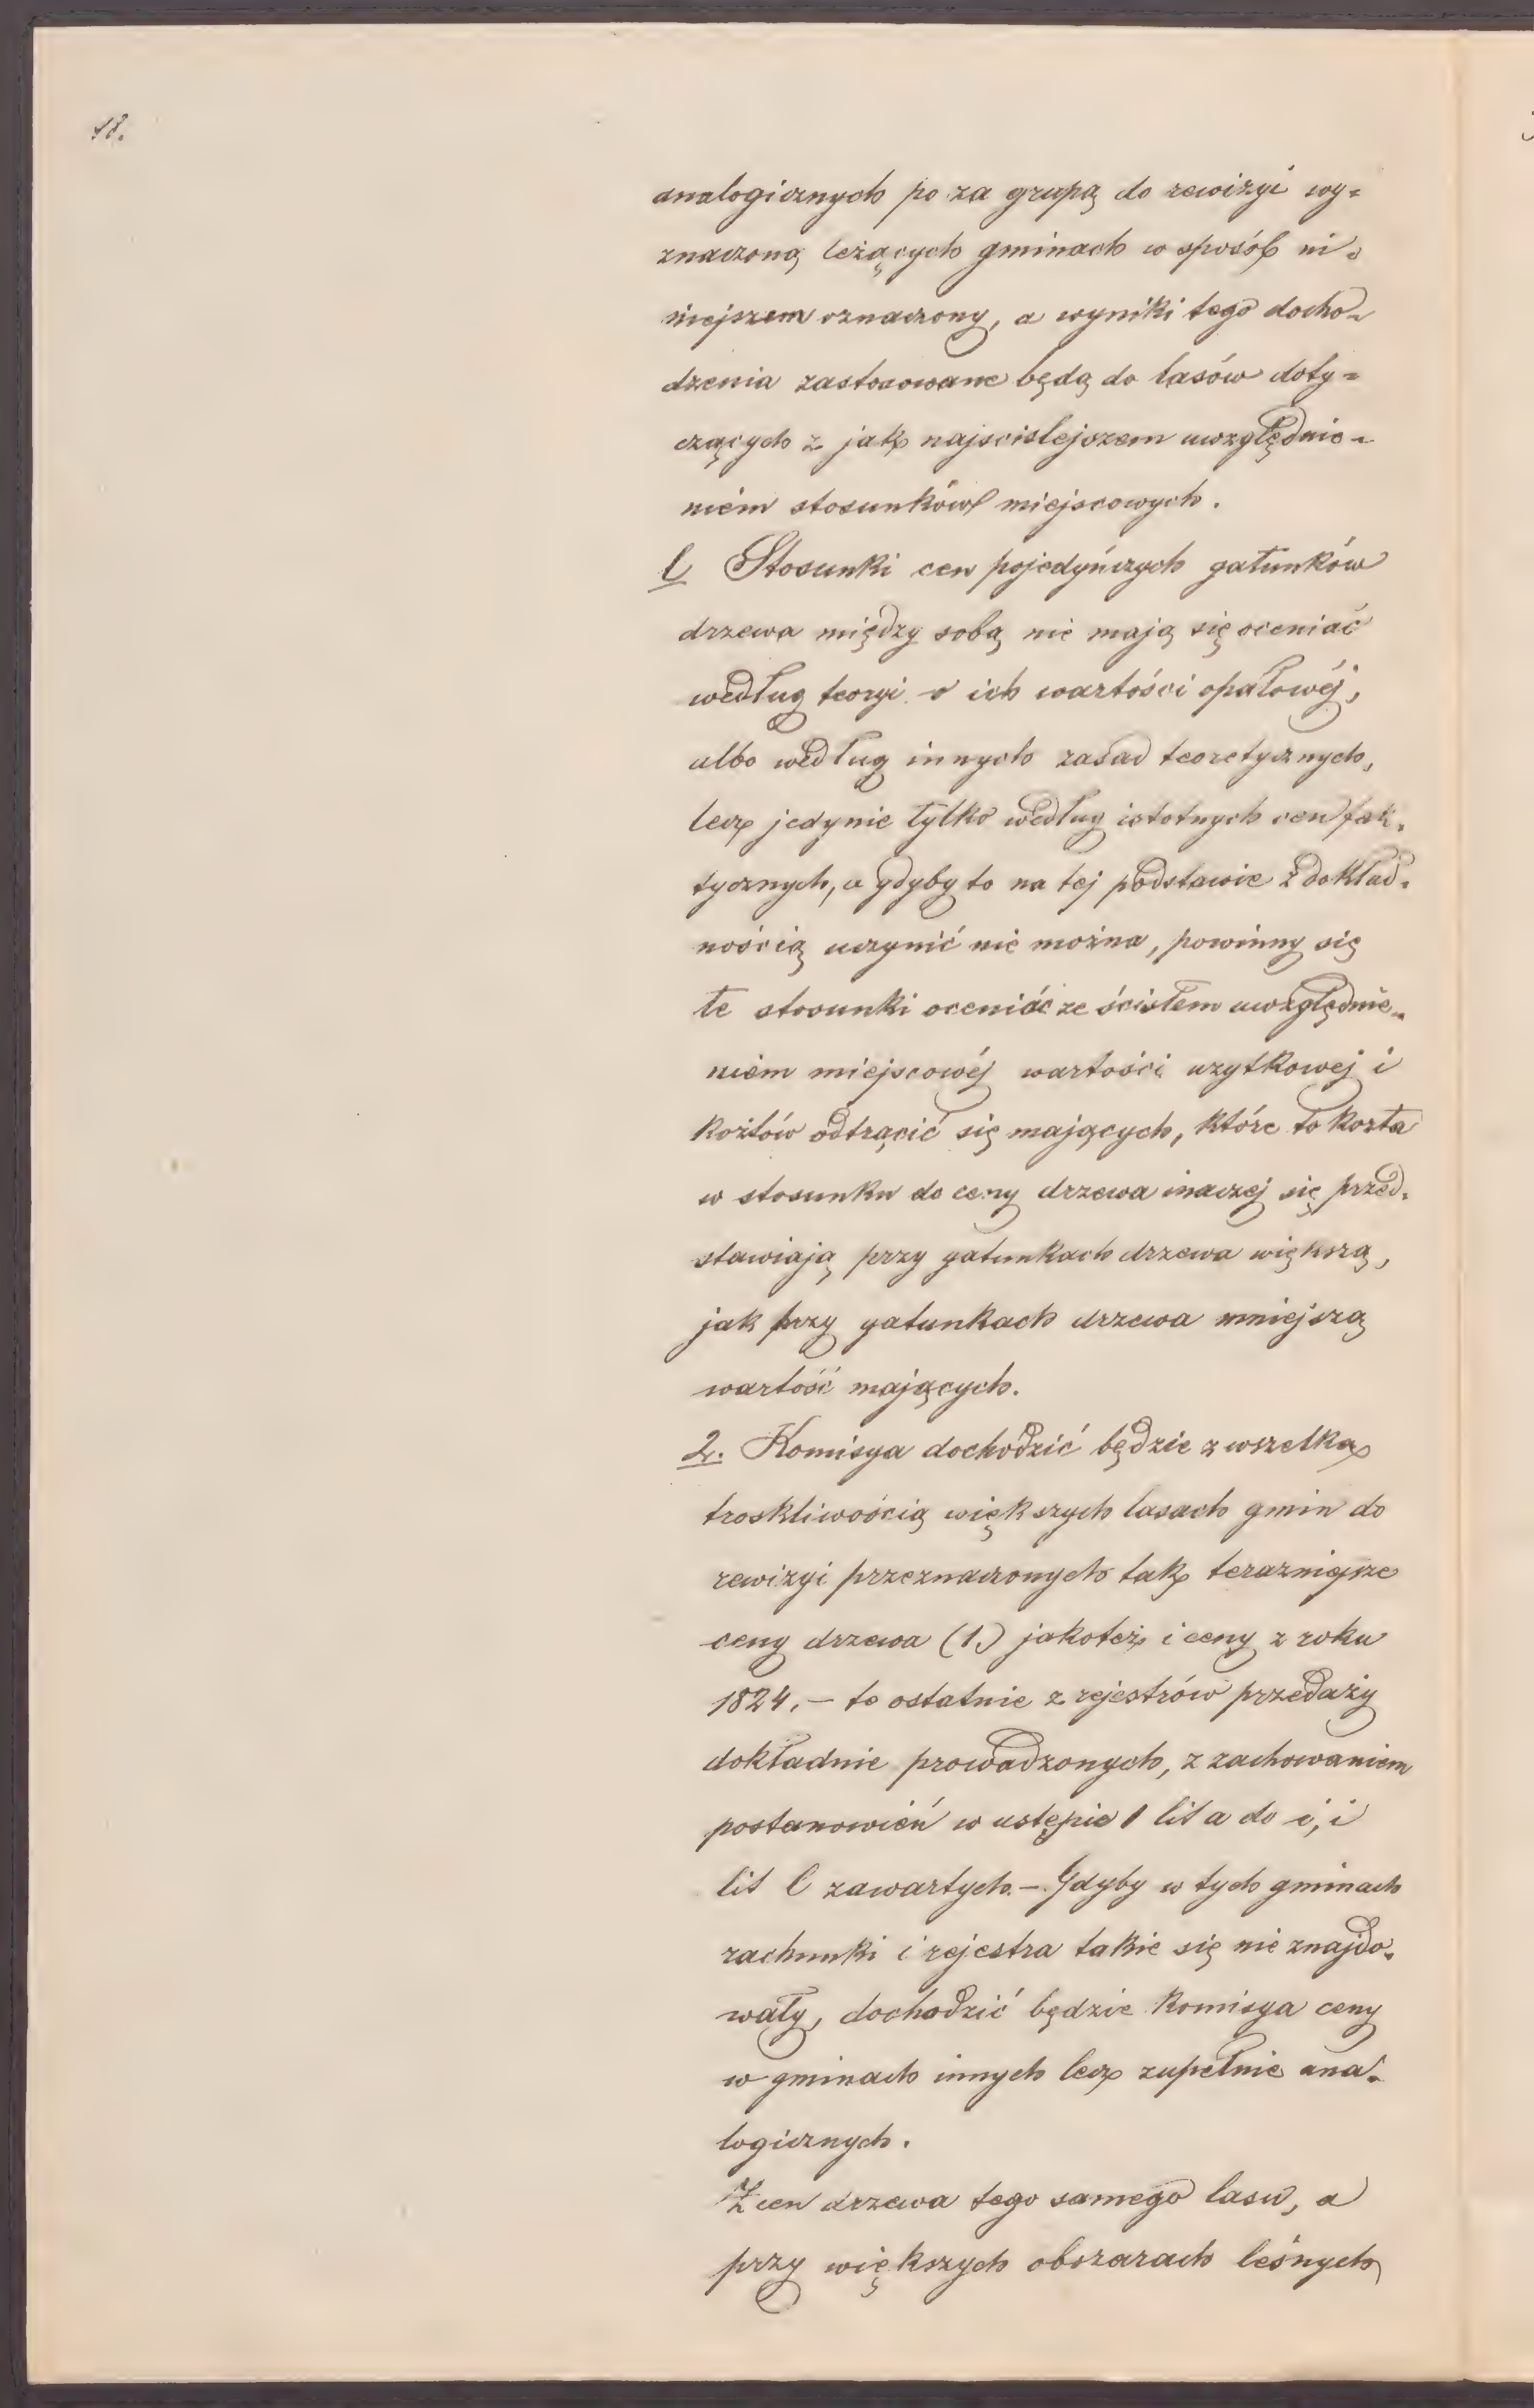 18.
analogicznych po za grupą do rewizyi wy=
znaczoną leżących gminach w sposób ni=
niejszem oznaczony, a wyniki tego docho-
dzenia zastosowane będą do lasów doty=
czących z jak najscislejszem uwzględnie-
niém stosunków miejscowych.
l Stosunki cen pojedyńczych gatunków
drzewa między sobą nie mają się oceniać
według teoryi o ich wartości opałowéj,
albo według innych zasad teoretycznych,
lecz jedynie tylko według istotnych cen fak-
tycznych, a gdyby to na tej podstawie z dokład-
nością uczynić nie można, powinny się
te stosunki oceniác ze ścisłem uwzględnie-
niem miejscowéj wartości uzytkowej i
kosztów odtrącić się mających, które to koszta
w stosunku do ceny drzewa inaczej się przed-
stawiają przy gatunkach drzewa większą,
jak przy gatunkach drzewa mniejszą
wartość mających.
2. Komisya dochodzić będzie z wszelką
troskliwością większych lasach gmin do
rewizyi przeznaczonych tak terazniejsze
ceny drzewa (1.) jakoteż i ceny z roku
1824. – te ostatnie z rejestrów przedaży
dokładnie prowadzonych, z zachowaniem
postanowień w ustępie 1 lit a do i, i
lit l zawartych. – Gdyby w tych gminach
rachunki i rejestra takie się nie znajdo-
wały, dochodzić będzie Komisya ceny
w gminach innych lecz zupełnie ana-
logicznych.
Z cen drzewa tego samego lasu, a
przy większych obszarach leśnych